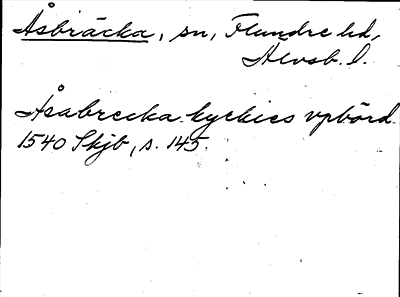 Åsbräcka, sn, Flundre hd,
Älvsb. l.
Åsabrecka kyrkies vpbörd
1540 Skjb, s. 145.